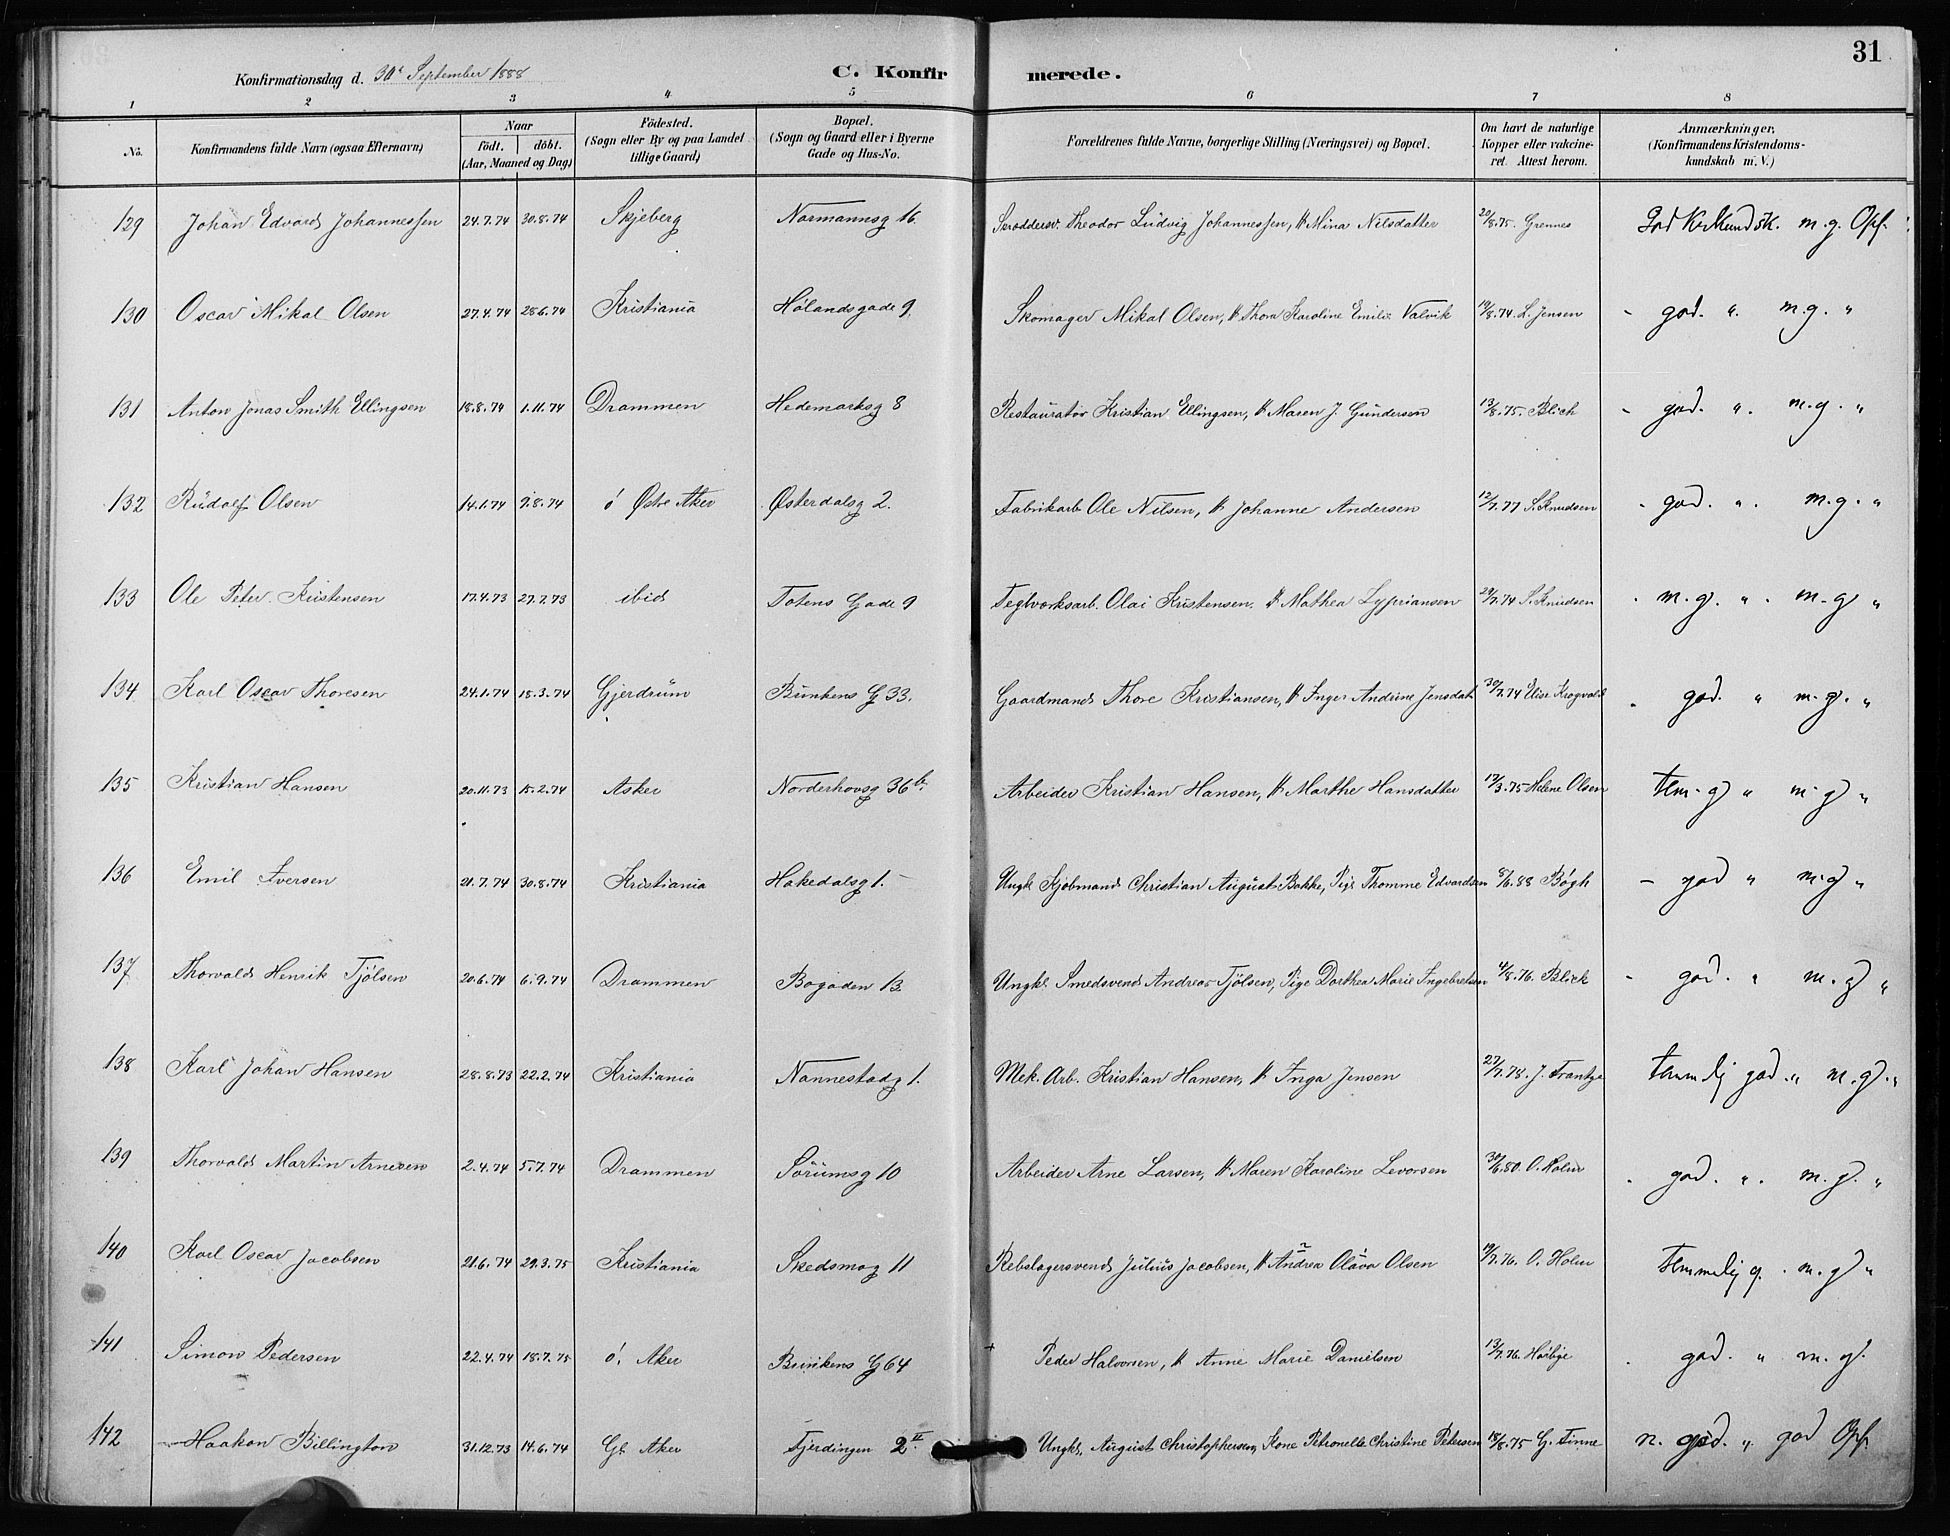 31
Konfirmationsdag d. 30te September 1888 C. Konfir merede.
1 2 3 4 5 6 7 8
No. Konfirmandens fulde Navn (ogsaa Efternavn) Naar født. døbt. (Aar, Maaned og Dag) Fødested. (Sogn eller By og paa Landet tillige Gaard) Bopæl. (Sogn og Gaard eller i Byerne Gade og Hus-No. Forældrenes fulde Navne, borgerlige Stilling (Næringsvei) og Bopæl. Om havt de naturlige Kopper eller vakcineret. Attest herom. Anmærkninger. (Konfirmandens Kristendomskundskab m. V.)
129 Johan Edvard Johannessen 24.7.74 30.8.74 Skjeberg Normannsg 16. Theodor Ludvig Johannessen, & Mina Nilsdatter 29/8.75. Grennes God Kr.kundsk. m.g. Opf.
130 Oscar Mikal Olsen 27.4.74 28.6.74 Kristiania Hølandsgade 9. Skomager Mikal Olsen, & Thora Karoline Emilie Valvik 19/8.74. L. Jensen - god. " m.g. "
131 Anton Jonas Smith Ellingsen 18.8.74 1.11.74 Drammen Hedemarksg 8 Restauratør Kristian Ellingsen, & Maren J. Gundersen 13/8.75. Blich - god. " m.g. "
132 Rudolf Olsen 14.1.74 9.8.74 ó Østre Aker Østerdalsg 2. Fabrikarb Ole Nilsen, & Johanne Andersen 12/7.77 S. Knudsen - god. " m.g. "
133 Ole Peter Kristensen 17.4.73 27.7.73 ibid Totens Gade 9 Teglværksarb. Olai Kristensen. & Mathea Cypriansen 29/7.74 S. Knudsen . m.g. " m.g "
134 Karl Oscar Thoresen 24.1.74 18.3.74 Gjerdrum Brinkens G 33. Gaardmand Thore Kristiansen, & Inger Andrine Jensdat 30/7.74 Elise Krogvold . god. " m.g. "
135 Kristian Hansen 20.11.73 15.2.74 Asker Norderhovsg 36 b. Arbeider Kristian Hansen, & Marthe Hansdatter 17/3.75 Helene Olsen tem. g " m.g "
136 Emil Iversen 21.7.74 30.8.74 Kristiania Hakedalsg 1. Ungk. Kjøbmand Christian August Bakke, Pige Thomme Edvardsen 8/6.88 Bøgh - god " m.g "
137 Thorvald Henrik Tjølsen 20.6.74 6.9.74 Drammen Bogaden 13. Ungk. Smedsvend Andreas Tjølsen, Pige Dorthea Marie Ingebretsen 4/8.76. Blick - god. " m.g "
138 Karl Johan Hansen 28.8.73 22.2.74 Kristiania Nannestadg 1. Mek. Arb. Kristian Hansen, & Inga Jensen 27/7.78. J. Frantze temmelig god. " m.g. "
139 Thorvald Martin Arnesen 2.4.74 5.7.74 Drammen Sørumsg 10 Arbeider Arne Larsen, & Maren Karoline Levorsen 30/6.80. O. Holm . god. " m.g. "
140 Karl Oscar Jacobsen 21.6.74 29.3.75 Kristiania Skedsmog 11 Rebslagersvend Julius Jacobsen, & Andrea Olava Olsen 19/7.76. O. Holm temmelig g. . m.g "
141 Simon Pedersen 22.4.74 18.7.75 ó. Aker Brinkens G 64 Peder Halvorsen, & Anne Marie Danielsen 13/7.76. Hørbye . god. " m.g.
142 Haakon Billington 31.12.73 14.6.74 Gl. Aker Fjerdingen 2 II Ungk. August Christophersen, Kone Petronelle Christine Petersen 18/8.75 G. Finne n. god. " god Opf.